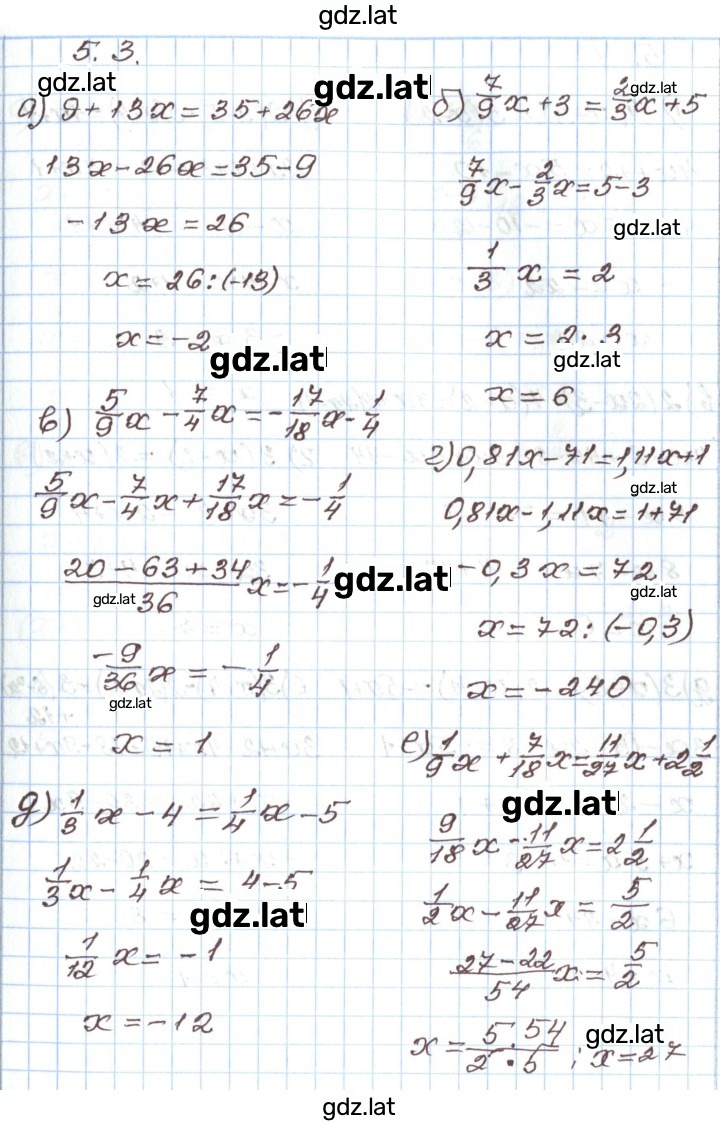 gdz.lat
5.3.
gdz.lat
а) 9+13x=35+26x
13x-26x=35-9
-13x=26
x=26:(-13)
x=-2
gdz.lat
б) 7/9x+3=2/3x+5
gdz.lat
gdz.lat
7/9x-2/3x=5-3
gdz.lat
1/3x=2
x=2·3
gdz.lat
x=6
в) 5/9x-7/4x=-17/18x-1/4
5/9x-7/4x+17/18x=-1/4
(20-63+34)/36x=-1/4
gdz.lat
gdz.lat
-9/36x=-1/4
gdz.lat
x=1
г) 0,81x-71=1,11x+1
gdz.lat
0,81x-1,11x=1+71
-0,3x=72
gdz.lat
x=72:(-0,3)
x=-240
д) 1/3x-4=1/4x-5
1/3x-1/4x=4-5
gdz.lat
1/12x=-1
x=-12
е) 1/9x+7/18x=11/27x+2 1/2
gdz.lat
9/18x-11/27x=2 1/2
1/2x-11/27x=5/2
(27-22)/54x=5/2
x=(5·54)/(2·5); x=27
gdz.lat
gdz.lat